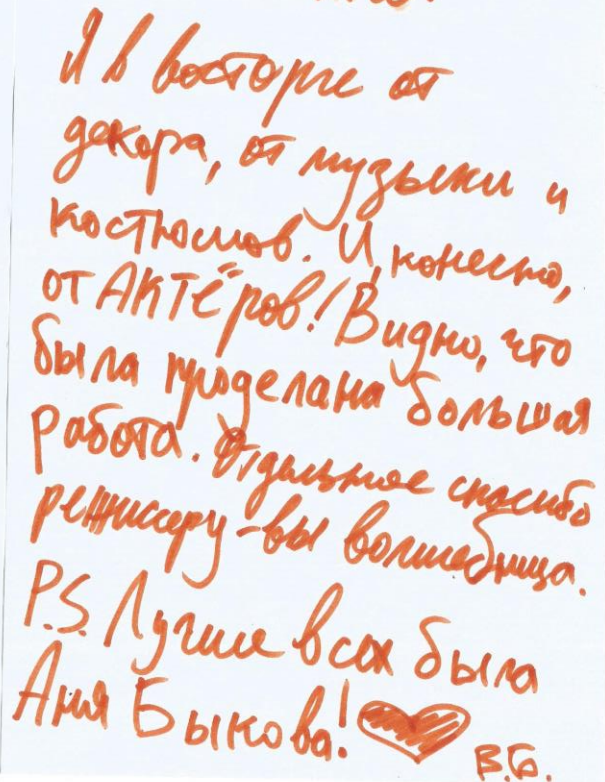 Я в восторге от
декора, от музыки и
костюмов. И, конечно,
от АКТЁров! Видно, что
была проделана большая
работа. Отдельное спасибо
режиссеру - вы волшебница.
P.S. Лучше всех была
Аня Быкова!
В.Б.